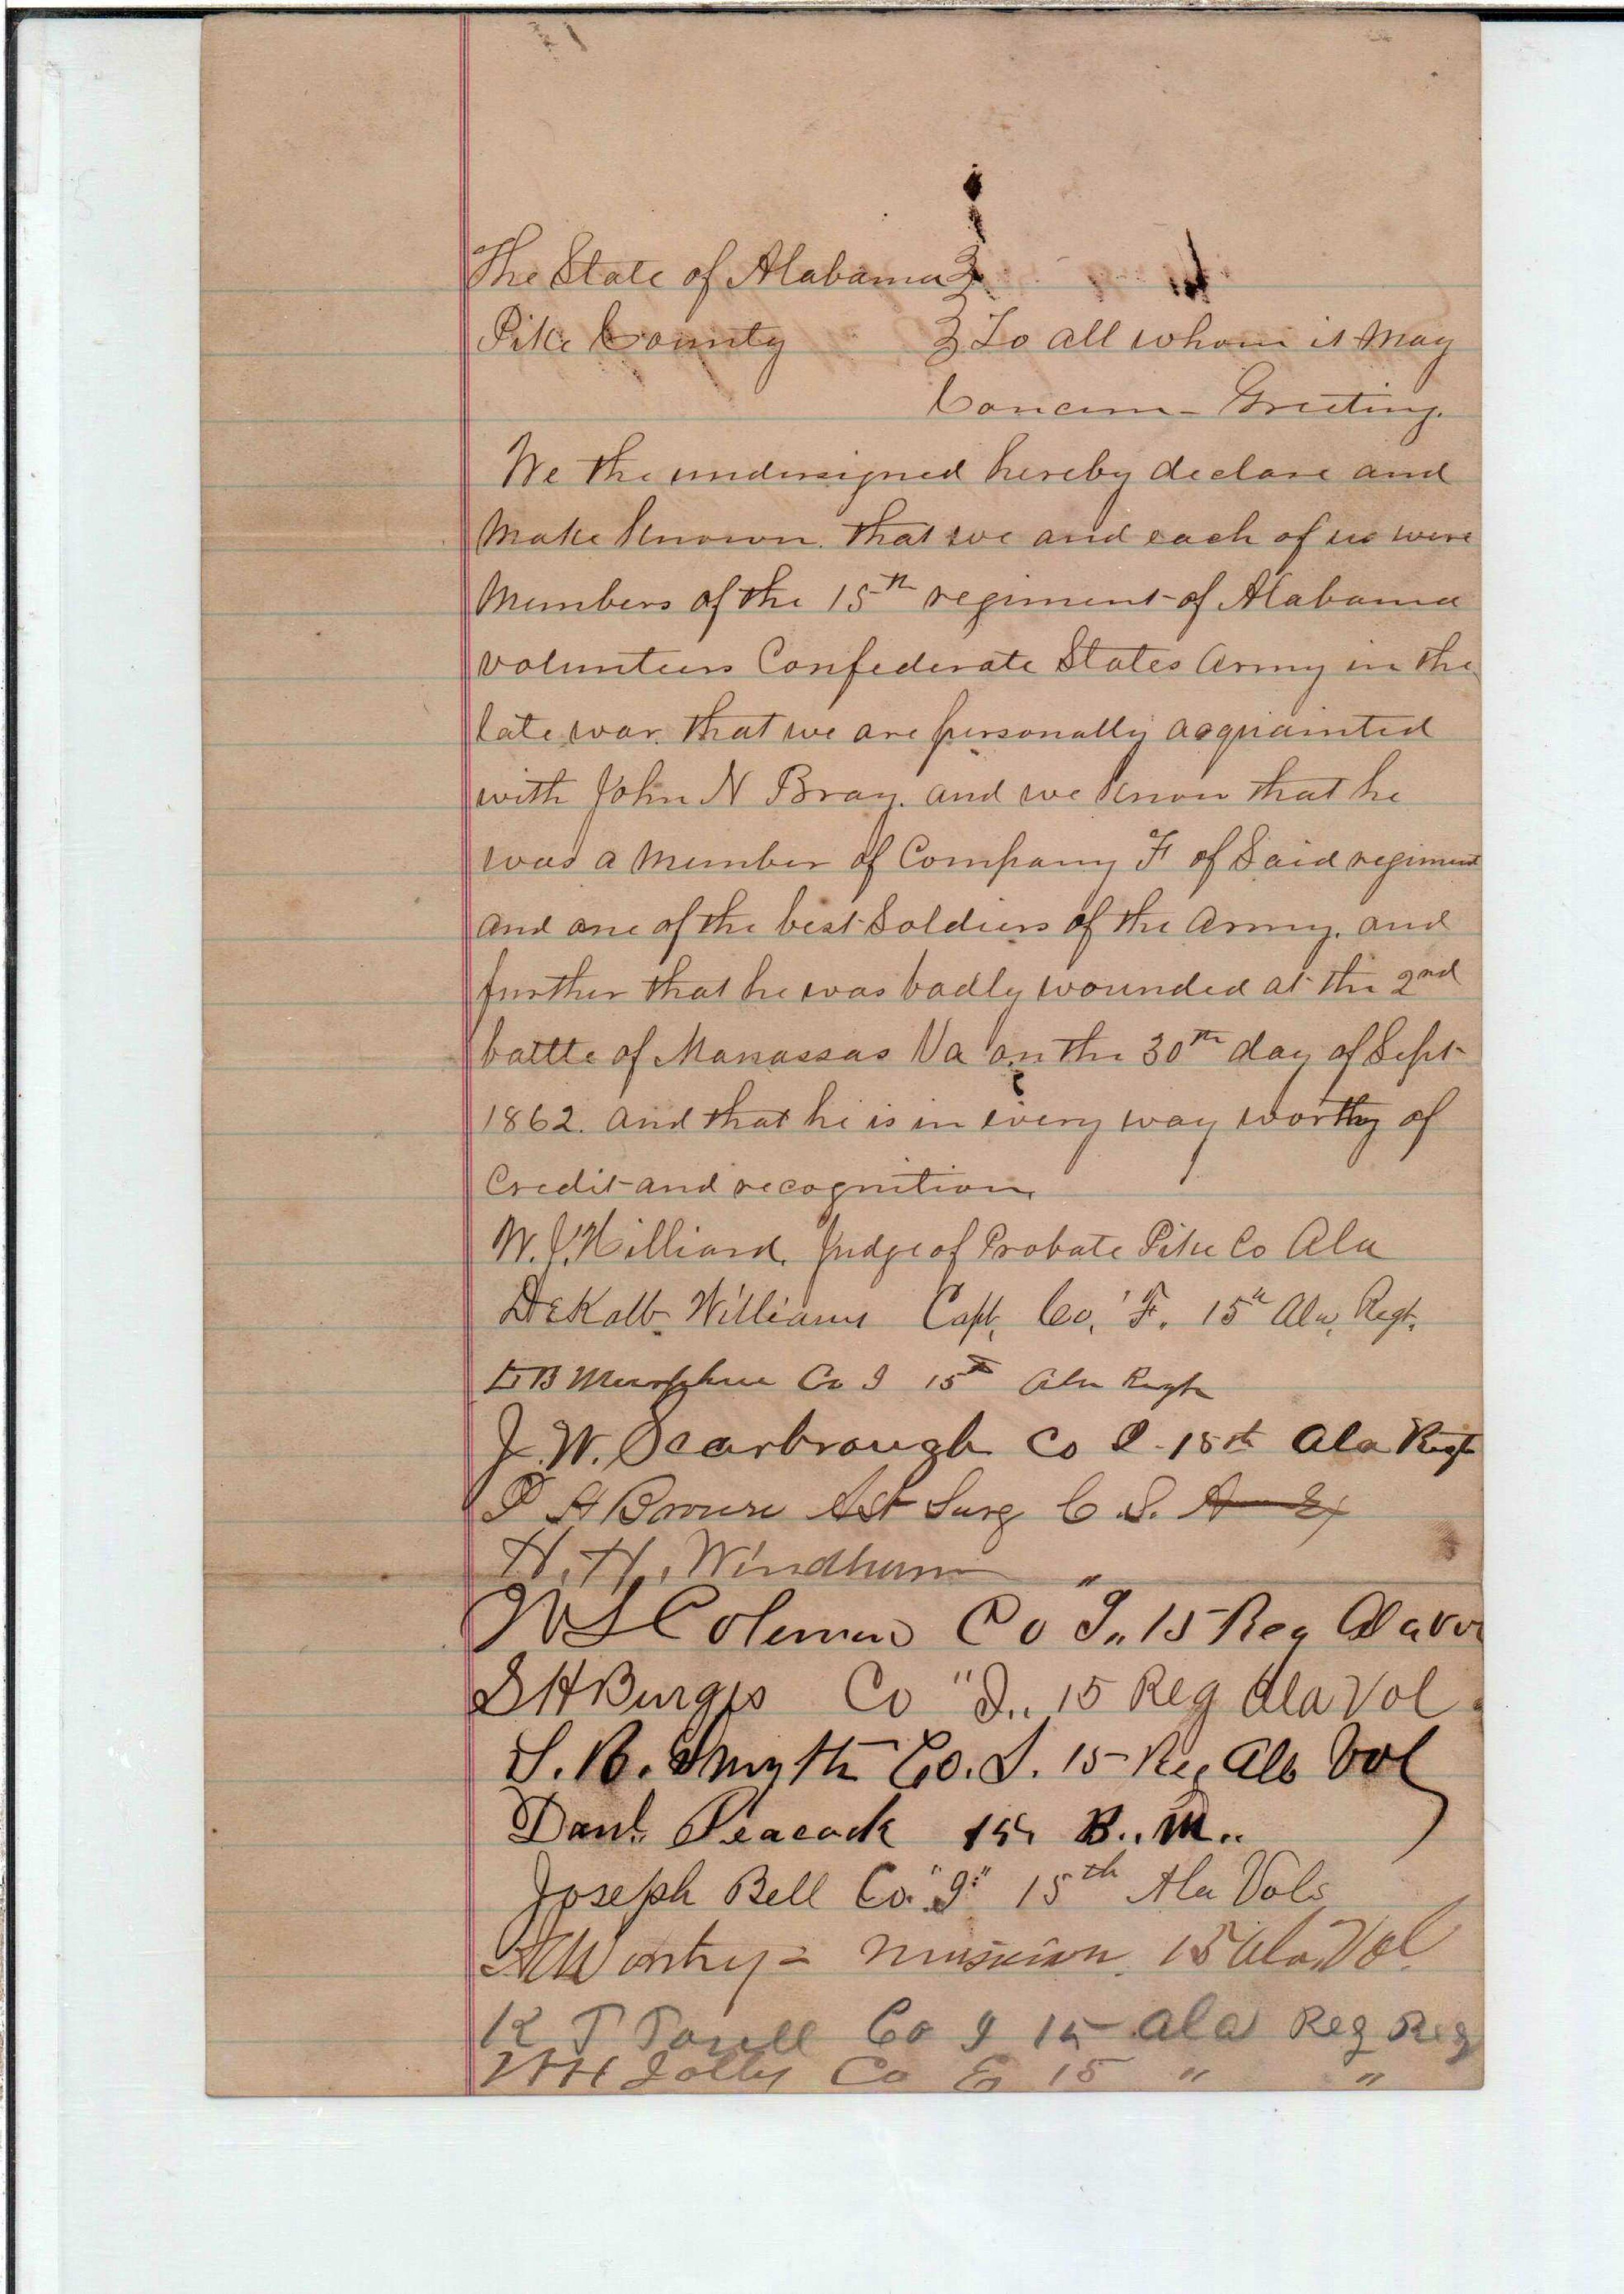 The State of Alabama }
Pike County } To all whom it may
Concern - Greeting.
We the undersigned hereby declare and
make known. that we and each of us were
members of the 15th regiment of Alabama
volunteers Confederate States Army in the
late war. that we are personally acquainted
with John N Bray. and we know that he
was a member of Company F of Said regiment
and one of the best Soldiers of the Army. and
further that he was badly wounded at the 2nd
battle of Manassas Va on the 30th day of Sept
1862. and that he is in every way worthy of
Credit and recognition.
W. J. Hilliard, Judge of Probate Pike Co Ala
DeKalb Williams Capt, Co, F. 15th Ala, Regt.
Co I 15th Ala Regt
J. W. Scarbrough Co I 15th Ala Regt
P H Brown Ast Surg C. S.
H. H. Windham "
W L Coleman Co I" 15 Reg Ala Vol
S H Burgis Co "I" 15 Reg Ala Vol
S. B. Smyth Co. I. 15 Reg Ala Vol
Danl. Peacock B.. M..
Joseph Bell Co. "I" 15th Ala Vols
Worthy - musician. 15 Ala Vol.
K T Co I 15 Ala Reg Reg
W H Jolly Co E 15 " "